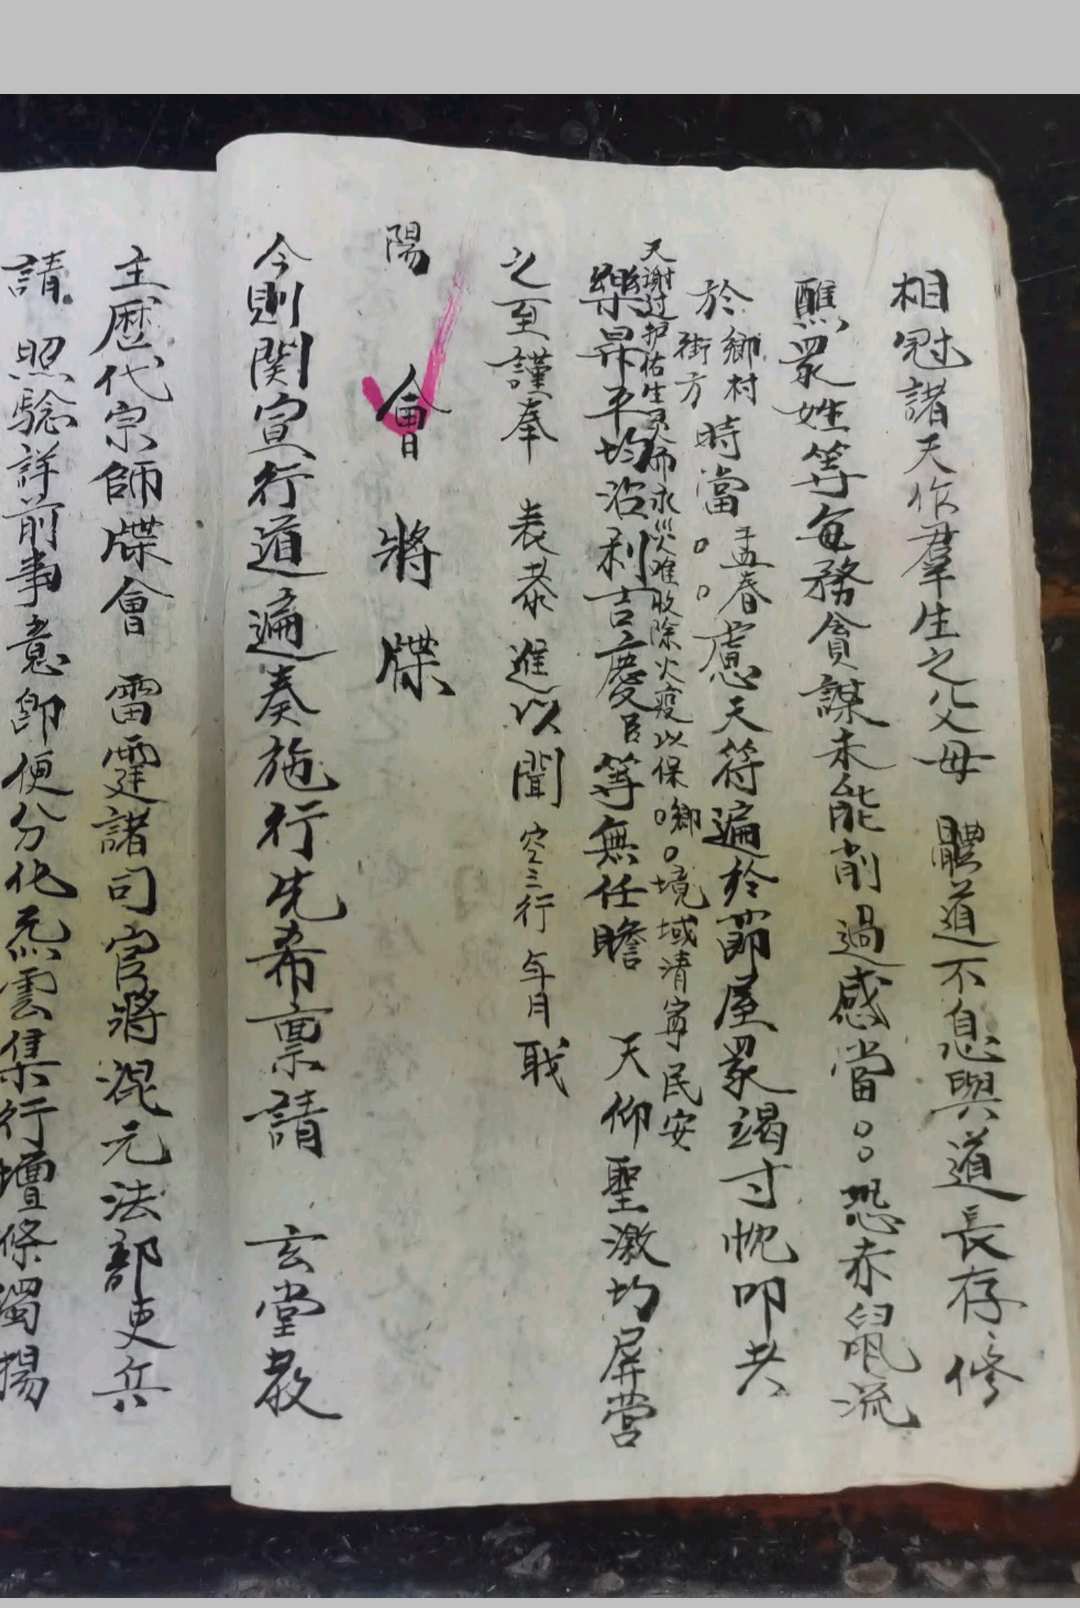 相冠諸天作羣生之父母 體道不息與道長存修
醮眾姓等每務貪謀未能削過感當。。恐赤鼠流
於鄉村街方時當。。孟春慮天符遍於蔀屋眾竭寸忱叩共
天謝过护佑生灵而永災难收除火疫以保。鄉。境域清寧民安
樂昇平均沾利吉慶臣等無任瞻 天仰聖激切屏營
之至謹奉 表恭進以聞 空三行 年月 職
陽會將牒
今則関宣行道遍奏施行先希稟請 玄堂教
主歷代宗師牒會 雷霆諸司官將混元法部吏兵
請 照驗詳前事意即便分化炁雲集行壇條濁揚